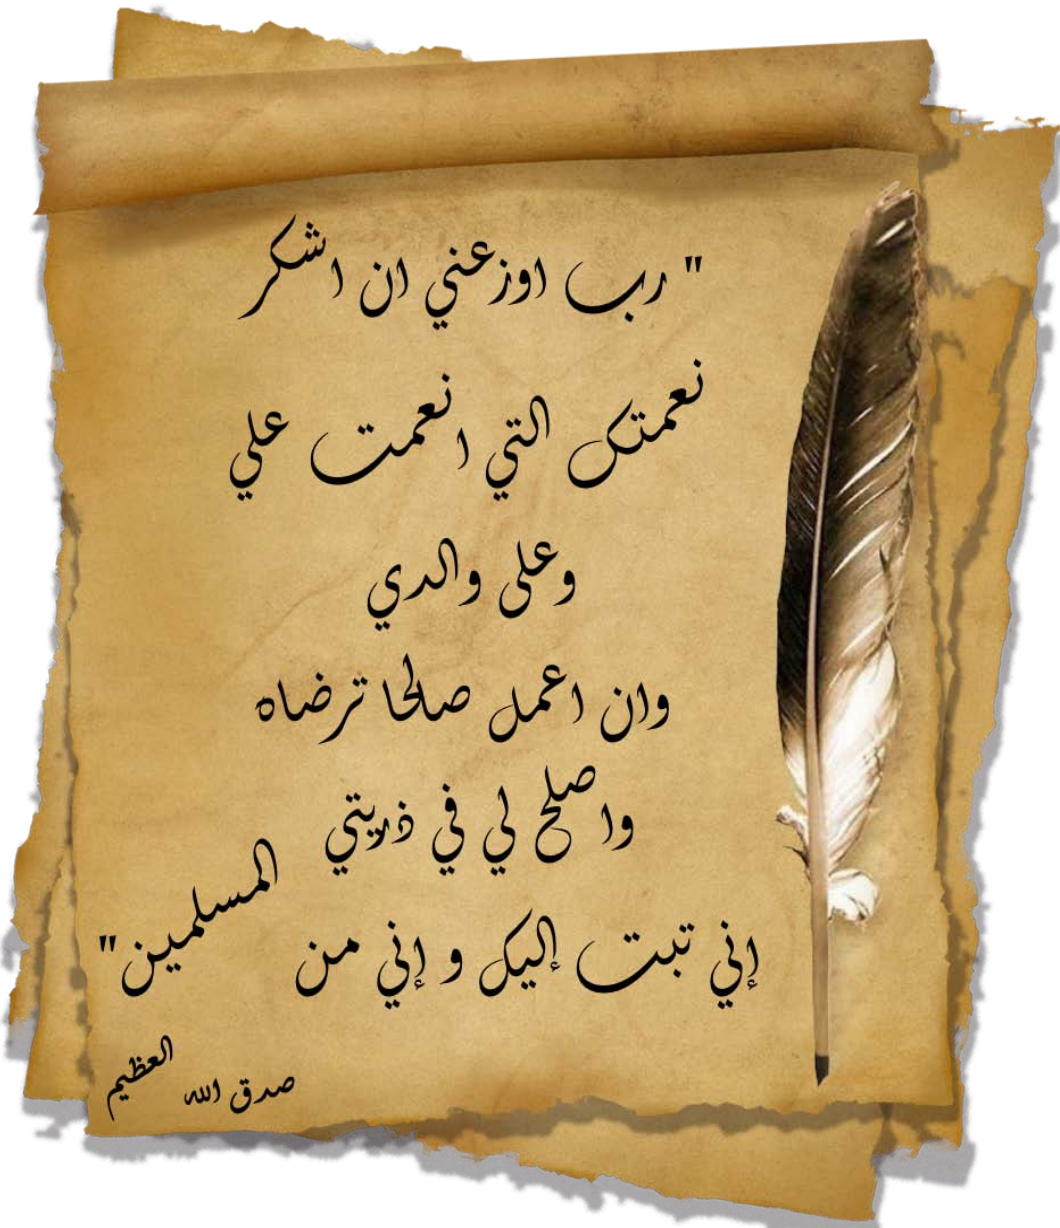 " رب اوزعني ان اشكر
نعمتك التي انعمت علي
وعلى والدي
وان اعمل صالحا ترضاه
واصلح لي في ذريتي
إني تبت إليك و إني من المسلمين"
صدق الله العظيم